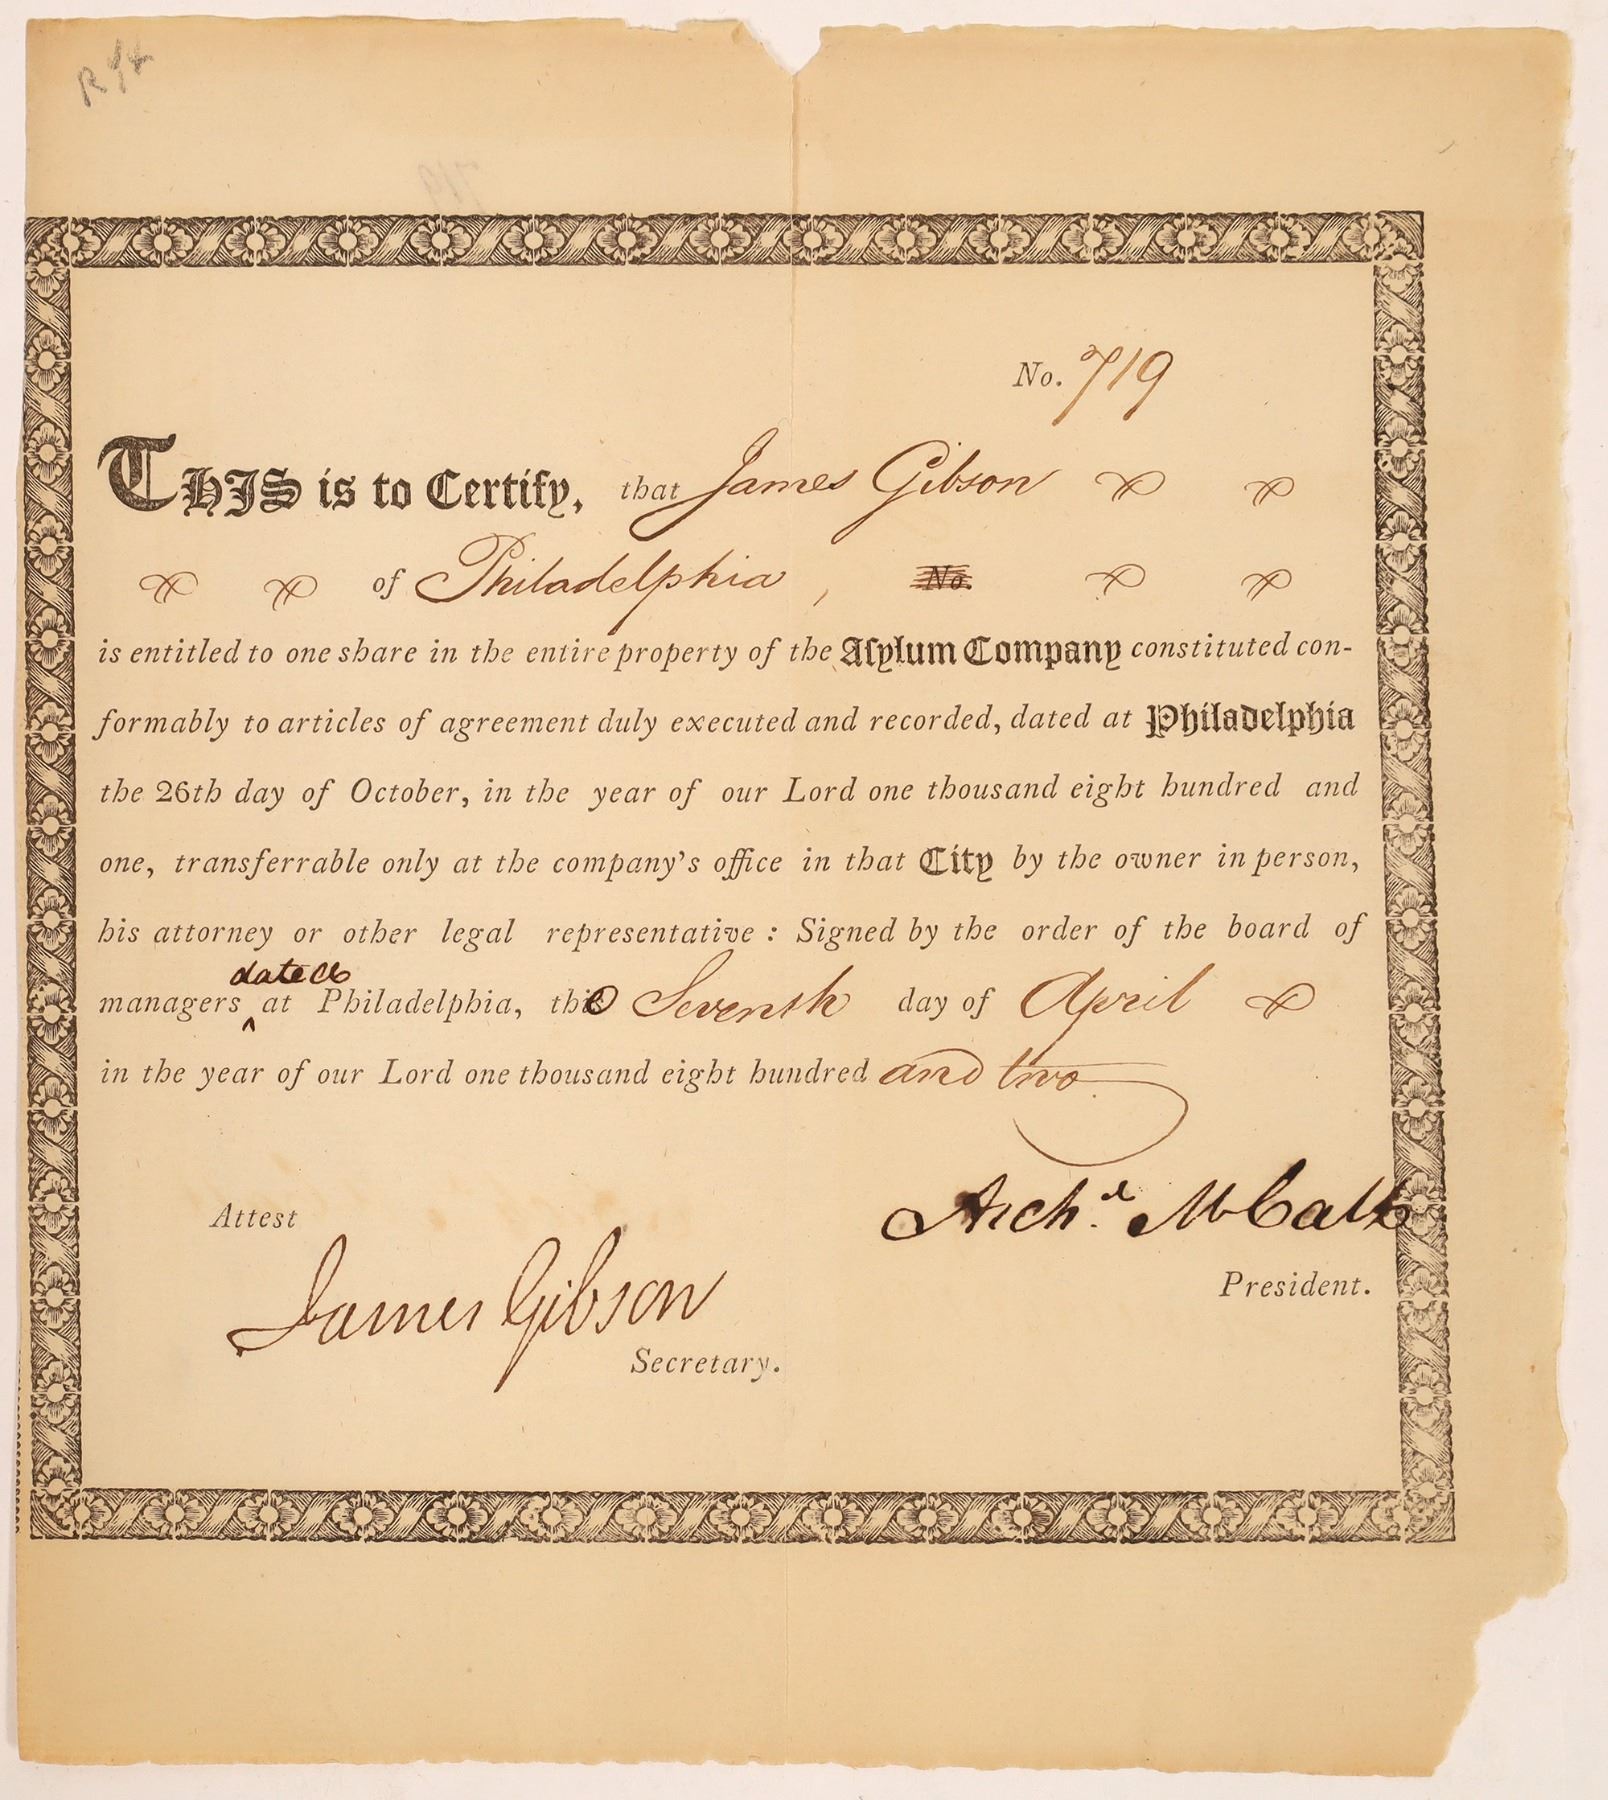 No. 719
THIS is to Certify, that James Gibson
of Philadelphia, No.
is entitled to one share in the entire property of the Aſylum Company constituted con-
formably to articles of agreement duly executed and recorded, dated at Philadelphia
the 26th day of October, in the year of our Lord one thousand eight hundred and
one, transferrable only at the company's office in that City by the owner in person,
his attorney or other legal representative : Signed by the order of the board of
dated
managers ^ at Philadelphia, the Seventh day of April
in the year of our Lord one thousand eight hundred and two
Attest
Archd. McCall
President.
James Gibson
Secretary.